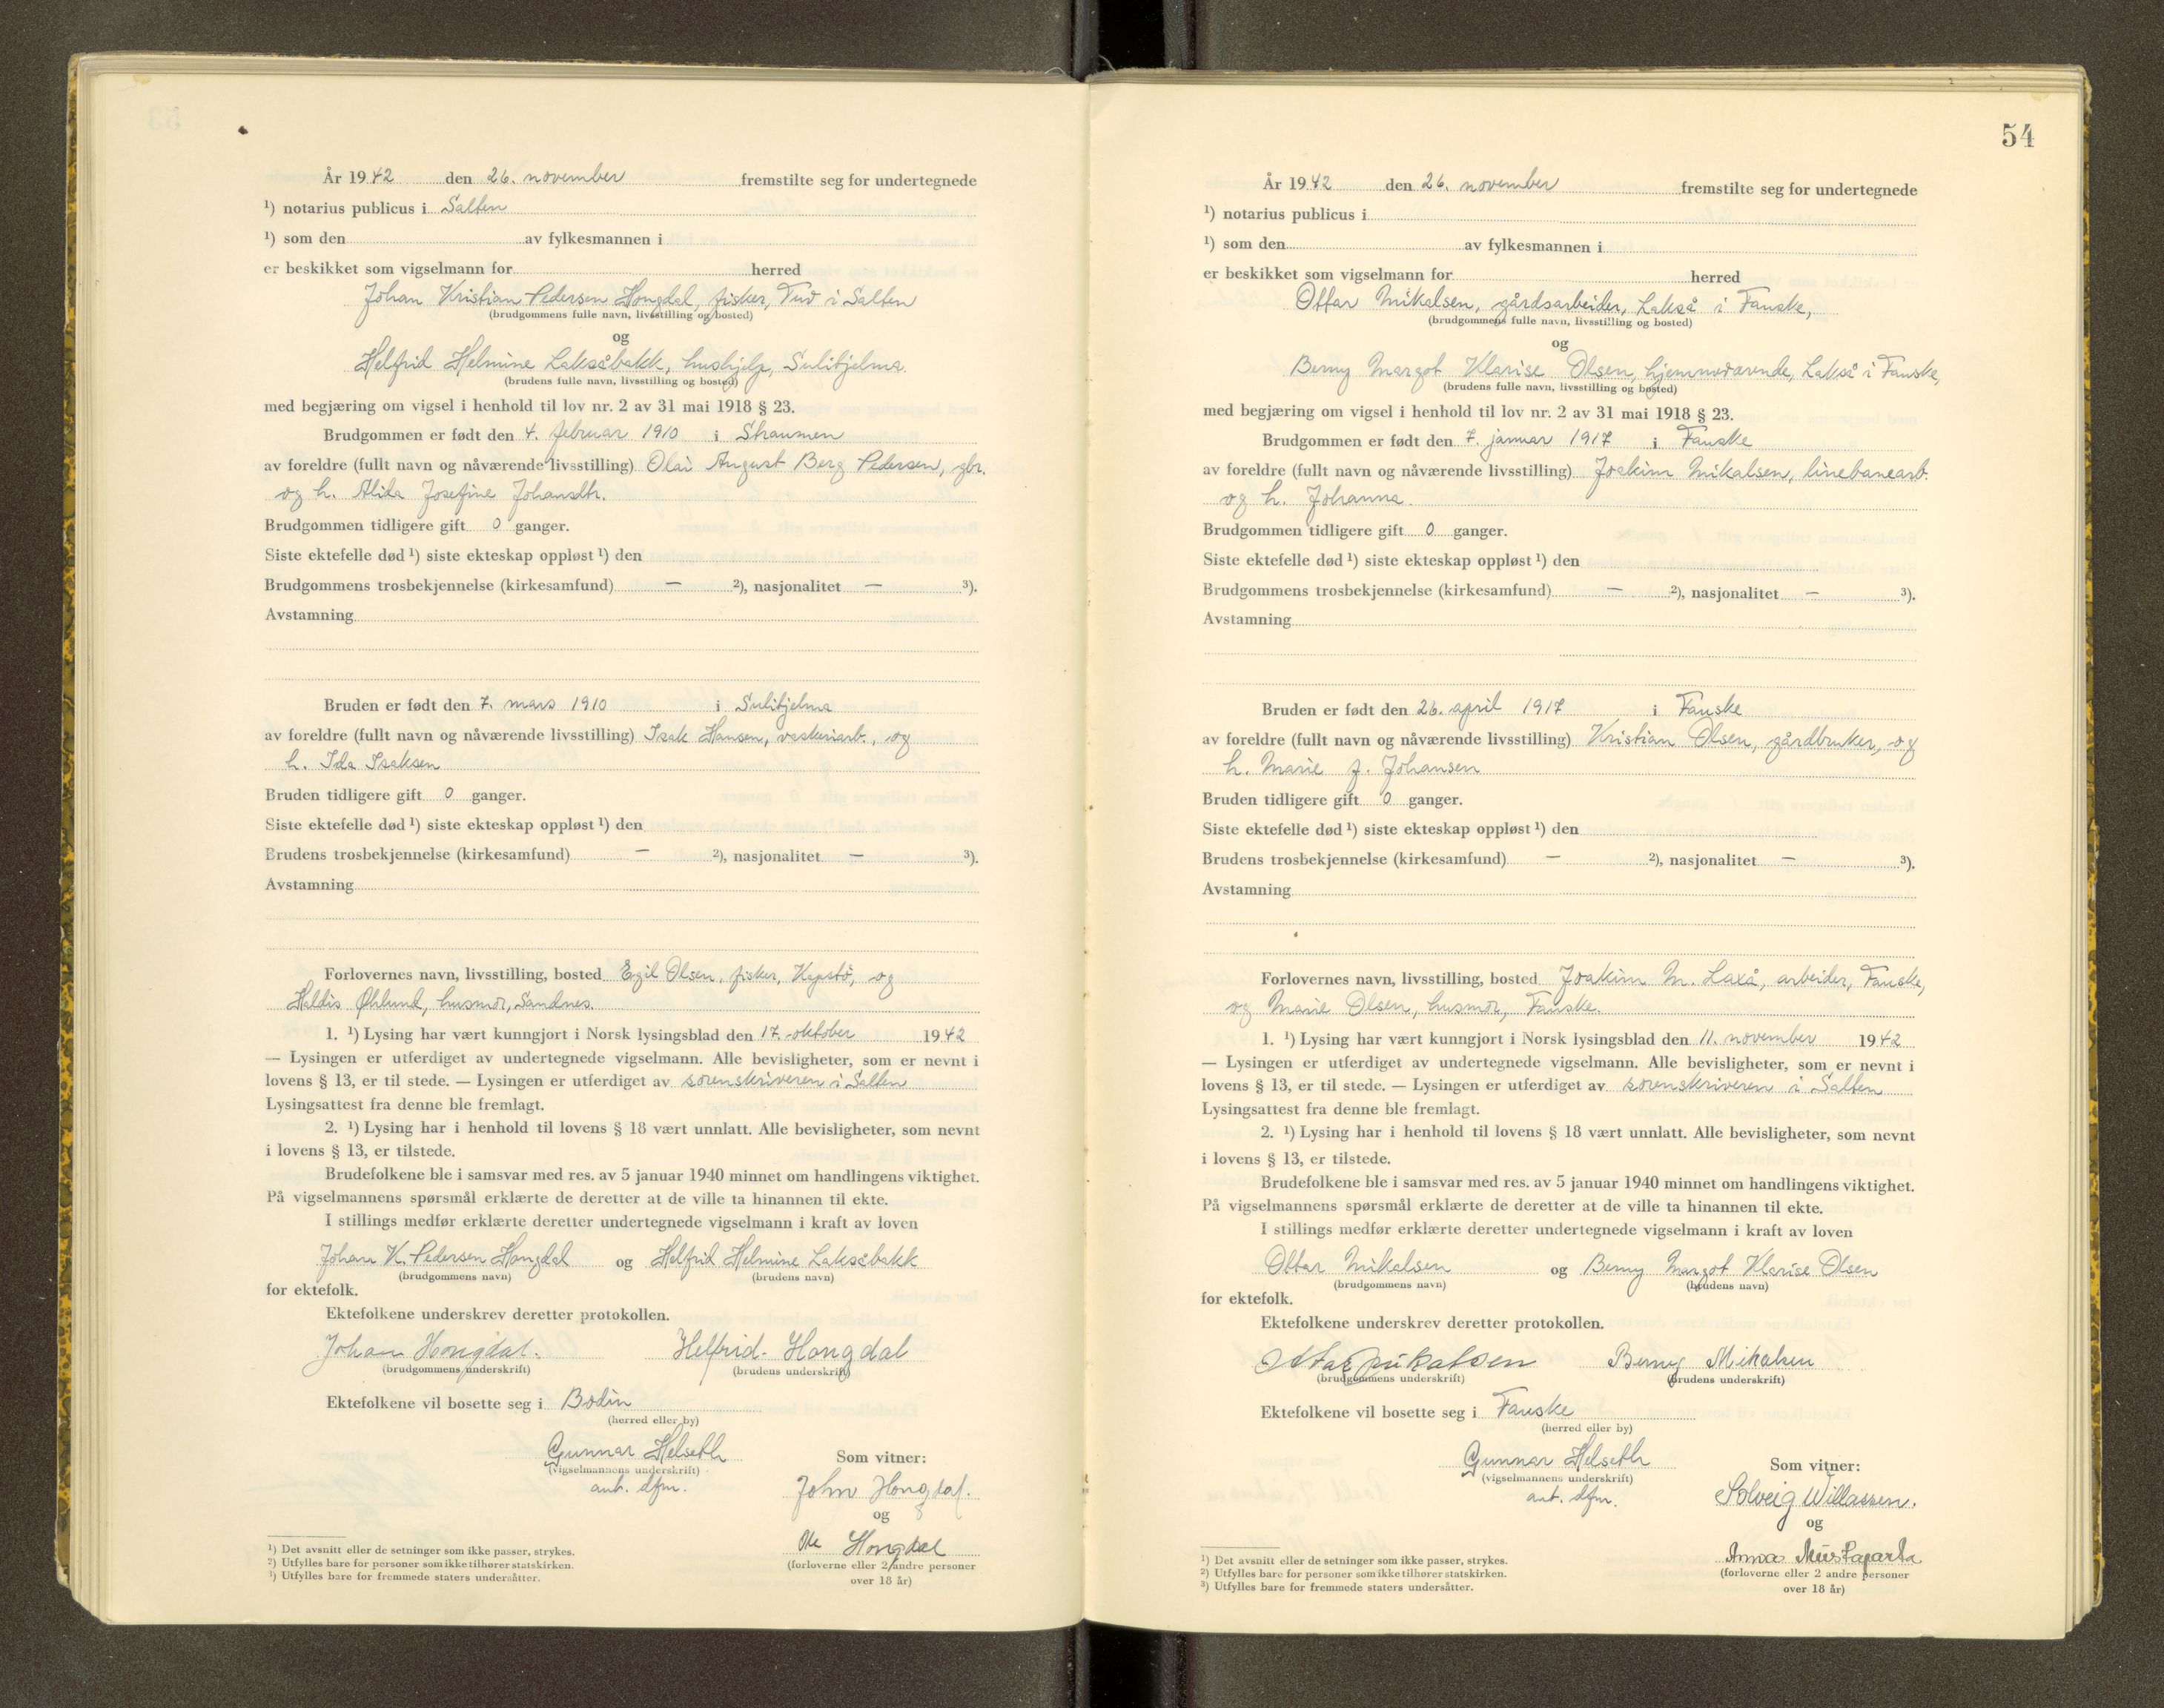 År 1942 den 26. november fremstilte seg for undertegnede
¹) notarius publicus i Salten
¹) som den av fylkesmannen i
er beskikket som vigselmann for herred
Johan Kristian Pedersen Hongdal, fisker, Tuv i Salten
(brudgommens fulle navn, livsstilling og bosted)
og
Helfrid Helmine Laksåbakk, hushjelp, Sulitjelma
(brudens fulle navn, livsstilling og bosted)
med begjæring om vigsel i henhold til lov nr. 2 av 31 mai 1918 § 23.
Brudgommen er født den 4. februar 1910 i Straumen
av foreldre (fullt navn og nåværende livsstilling) Olai August Berg Pedersen, gbr.
og h. Alida Josefine Johansdtr.
Brudgommen tidligere gift 0 ganger.
Siste ektefelle død ¹) siste ekteskap oppløst ¹) den
Brudgommens trosbekjennelse (kirkesamfund) — ²), nasjonalitet — ³).
Avstamning
Bruden er født den 7. mars 1910 i Sulitjelma
av foreldre (fullt navn og nåværende livsstilling) Isak Hansen, vaskeriarb., og
h. Ida Isaksen
Bruden tidligere gift 0 ganger.
Siste ektefelle død ¹) siste ekteskap oppløst ¹) den
Brudens trosbekjennelse (kirkesamfund) — ²), nasjonalitet — ³).
Avstamning
Forlovernes navn, livsstilling, bosted Egil Olsen, fisker, Kapstø, og
Haldis Øhlund, husmor, Sandnes.
1. ¹) Lysing har vært kunngjort i Norsk lysingsblad den 17. oktober 1942
— Lysingen er utferdiget av undertegnede vigselmann. Alle bevisligheter, som er nevnt i
lovens § 13, er til stede. — Lysingen er utferdiget av sorenskriveren i Salten
Lysingsattest fra denne ble fremlagt.
2. ¹) Lysing har i henhold til lovens § 18 vært unnlatt. Alle bevisligheter, som nevnt
i lovens § 13, er tilstede.
Brudefolkene ble i samsvar med res. av 5 januar 1940 minnet om handlingens viktighet.
På vigselmannens spørsmål erklærte de deretter at de ville ta hinannen til ekte.
I stillings medfør erklærte deretter undertegnede vigselmann i kraft av loven
Johan K. Pedersen Hongdal og Helfrid Helmine Laksåbakk
(brudgommens navn) (brudens navn)
for ektefolk.
Ektefolkene underskrev deretter protokollen.
Johan Hongdal. Helfrid. Hongdal
(brudgommens underskrift) (brudens underskrift)
Ektefolkene vil bosette seg i Bodin
(herred eller by)
Gunnar Helseth
(vigselmannens underskrift)
aut. dfm.
Som vitner:
John Hongdal.
og
Hongdal
(forloverne eller 2 andre personer
over 18 år)
¹) Det avsnitt eller de setninger som ikke passer, strykes.
²) Utfylles bare for personer som ikke tilhører statskirken.
³) Utfylles bare for fremmede staters undersåtter.
54
År 1942 den 26. november fremstilte seg for undertegnede
¹) notarius publicus i
¹) som den av fylkesmannen i
er beskikket som vigselmann for herred
Ottar Mikalsen, gårdsarbeider, Lakså i Fauske,
(brudgommens fulle navn, livsstilling og bosted)
og
Berny Margot Klarise Olsen, hjemmeværende, Lakså i Fauske,
(brudens fulle navn, livsstilling og bosted)
med begjæring om vigsel i henhold til lov nr. 2 av 31 mai 1918 § 23.
Brudgommen er født den 7. januar 1917 i Fauske
av foreldre (fullt navn og nåværende livsstilling) Joakim Mikalsen, linebanearb.
og h. Johanna.
Brudgommen tidligere gift 0 ganger.
Siste ektefelle død ¹) siste ekteskap oppløst ¹) den
Brudgommens trosbekjennelse (kirkesamfund) — ²), nasjonalitet — ³).
Avstamning
Bruden er født den 26. april 1917 i Fauske
av foreldre (fullt navn og nåværende livsstilling) Kristian Olsen, gårdbruker, og
h. Marie f. Johansen
Bruden tidligere gift 0 ganger.
Siste ektefelle død ¹) siste ekteskap oppløst ¹) den
Brudens trosbekjennelse (kirkesamfund) — ²), nasjonalitet — ³).
Avstamning
Forlovernes navn, livsstilling, bosted Joakim M. Laxå, arbeider, Fauske,
og Marie Olsen, husmor, Fauske.
1. ¹) Lysing har vært kunngjort i Norsk lysingsblad den 11. november 1942
— Lysingen er utferdiget av undertegnede vigselmann. Alle bevisligheter, som er nevnt i
lovens § 13, er til stede. — Lysingen er utferdiget av sorenskriveren i Salten
Lysingsattest fra denne ble fremlagt.
2. ¹) Lysing har i henhold til lovens § 18 vært unnlatt. Alle bevisligheter, som nevnt
i lovens § 13, er tilstede.
Brudefolkene ble i samsvar med res. av 5 januar 1940 minnet om handlingens viktighet.
På vigselmannens spørsmål erklærte de deretter at de ville ta hinannen til ekte.
I stillings medfør erklærte deretter undertegnede vigselmann i kraft av loven
Ottar Mikalsen og Berny Margot Klarise Olsen
(brudgommens navn) (brudens navn)
for ektefolk.
Ektefolkene underskrev deretter protokollen.
Ottar Mikalsen Berny Mikalsen
(brudgommens underskrift) (brudens underskrift)
Ektefolkene vil bosette seg i Fauske
(herred eller by)
Gunnar Helseth
(vigselmannens underskrift)
aut. dfm.
Som vitner:
Solveig Willassen.
og
Anna Mustaparta
(forloverne eller 2 andre personer
over 18 år)
¹) Det avsnitt eller de setninger som ikke passer, strykes.
²) Utfylles bare for personer som ikke tilhører statskirken.
³) Utfylles bare for fremmede staters undersåtter.